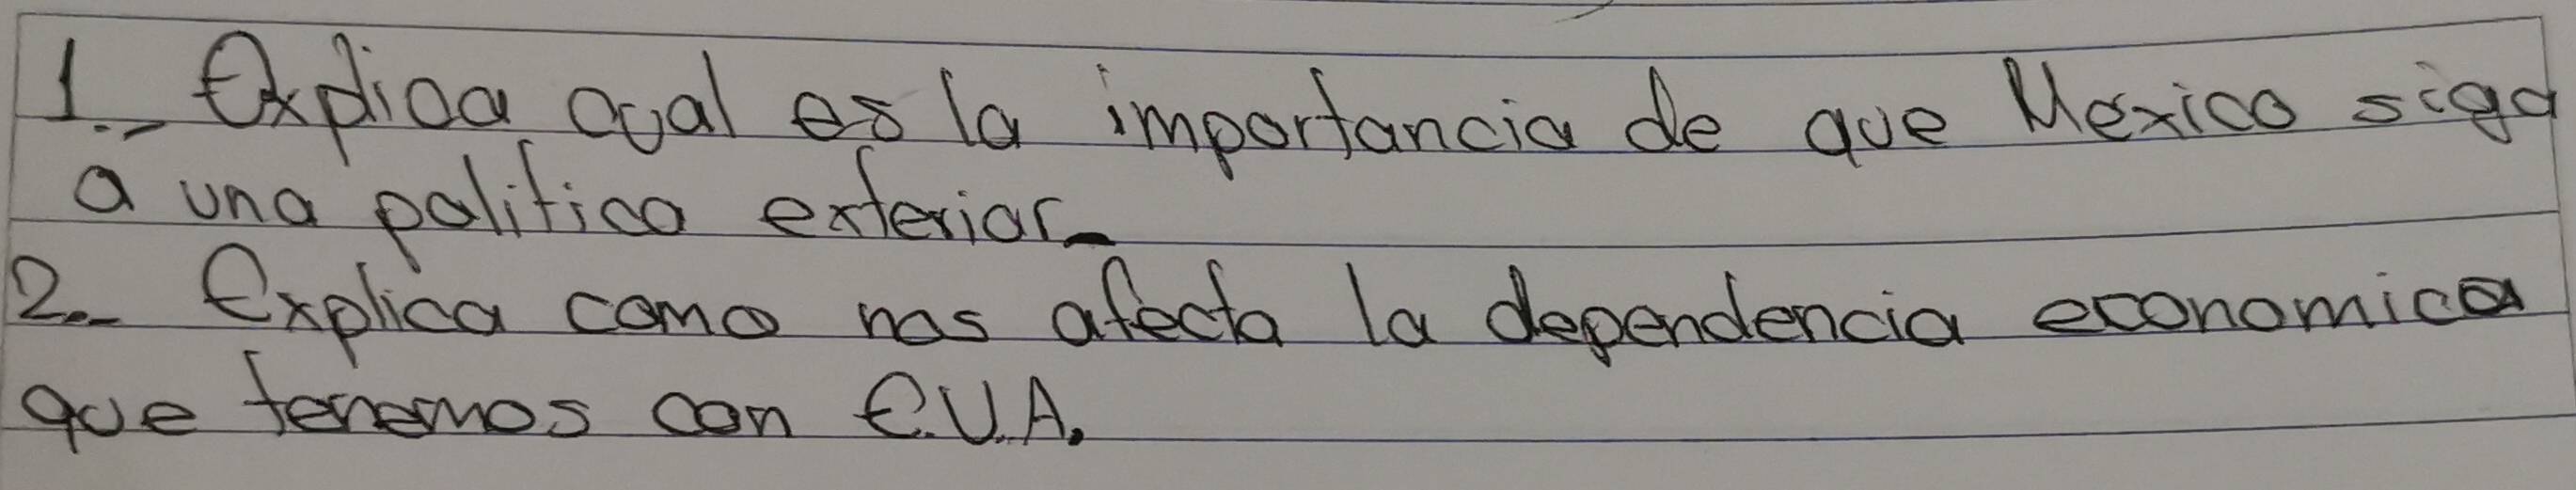 1.- Explica cual es la importancia de que Mexico siga
a una politica exterior.
2.- Explica como nos afecta la dependencia economica
que tenemos con E.U.A.